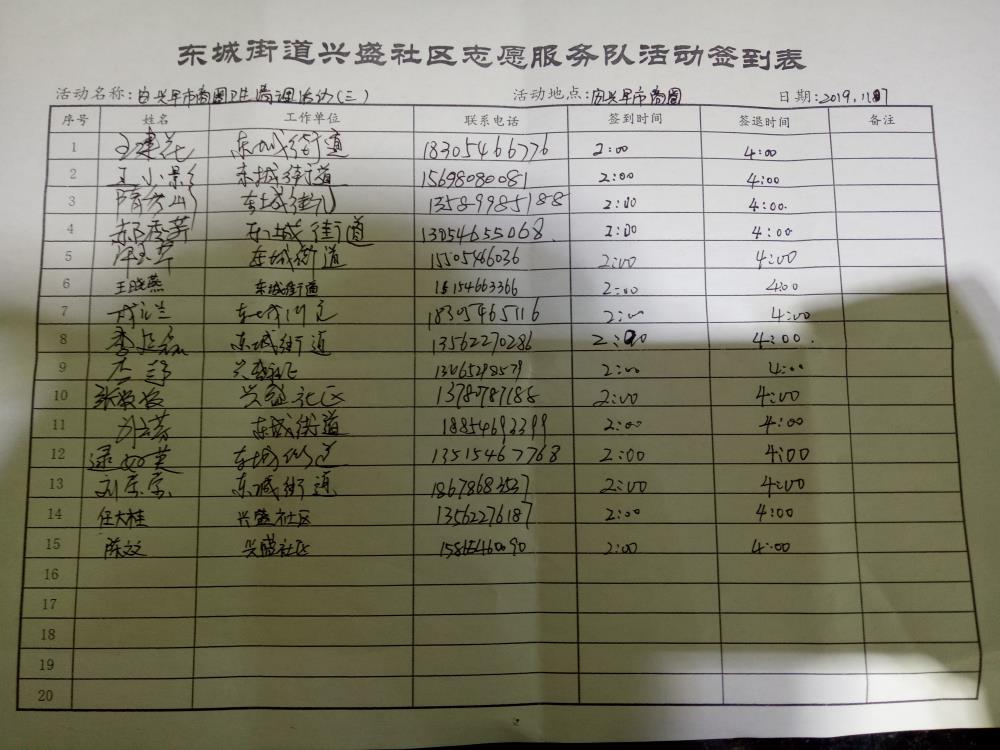 东城街道兴盛社区志愿服务队活动签到表
活动名称: 早市商圈卫生清理活动(三) 活动地点: 早市商圈 日期: 2019.11.
序号 姓名 工作单位 联系电话 签到时间 签退时间 备注
1 王建花 东城街道 18305466776 2:00 4:00
2 王小影 东城街道 15698080081 2:00 4:00
3 东城街道 13589985188 2:00 4:00
4 郝秀芹 东城街道 13054655068 2:00 4:00
5 东城街道 15505466036 2:00 4:00
6 王晓燕 东城街道 15154663366 2:00 4:00
7 东城街道 18305465116 2:00 4:00
8 东城街道 13562270286 2:00 4:00
9 兴盛社区 2:00 4:00
10 兴盛社区 13780787188 2:00 4:00
11 东城街道 18854692399 2:00 4:00
12 东城街道 13515467768 2:00 4:00
13 东城街道 18678683537 2:00 4:00
14 任大桂 兴盛社区 13562276187 2:00 4:00
15 陈文文 兴盛社区 2:00 4:00
16
17
18
19
20